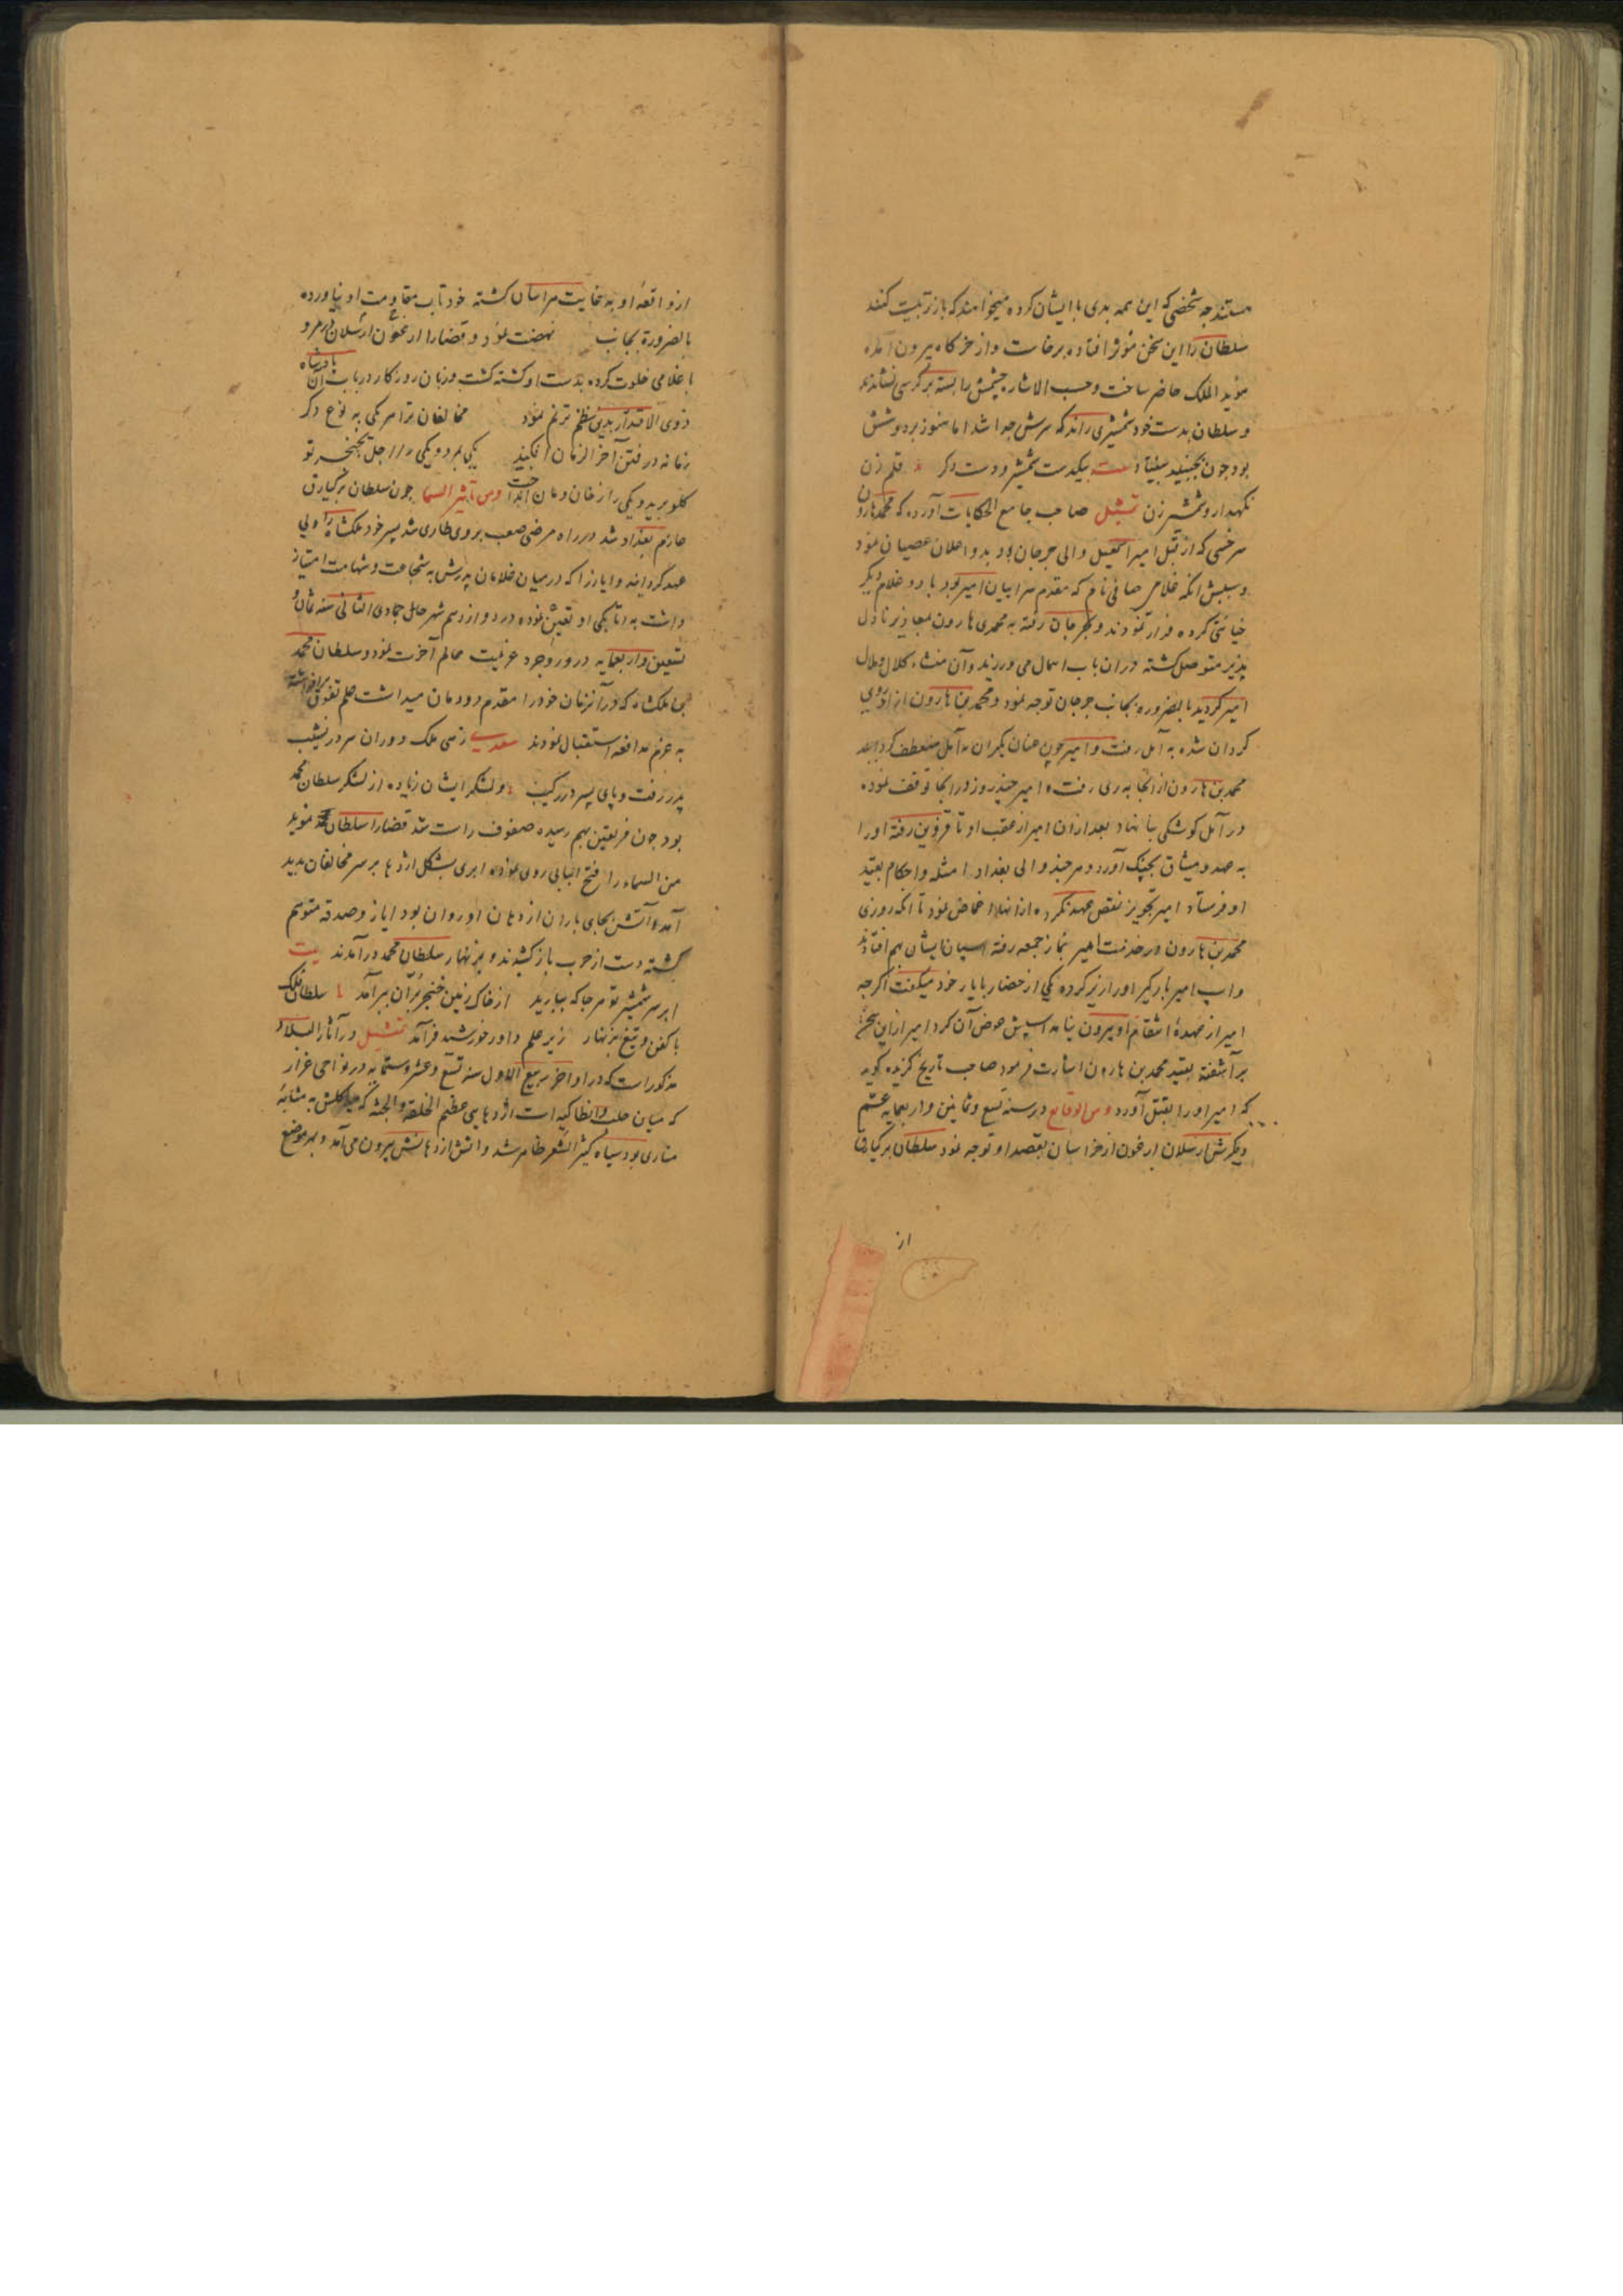 مستند چه شخصی که این همه بدی با ایشان کرده میخواهند که باز تربیت کنند
سلطان را این سخن مؤثر افتاده برخاست و از خرکاه بیرون آمده
مؤید الملک حاضر ساخت و حسب الاشاره چشمش را بسته بر کرسی نشاندند
و سلطان بدست خود شمشیری راند که سرش جدا شد اما هنوز بر دوشش
بود چون بجنبید بیفتاد بیت بیکدست شمشیر و دست دکر قلم زن
نکهدار و شمشیر زن تمثیل صاحب جامع الحکایات آورده که محمد هارون
سرخسی که از قبل امیر اسمعیل والی جرجان بود بدو اعلان عصیان نمود
و سببش انکه غلامی صافی نام که مقدم سراییان امیر بود با دو غلام دیکر
خیانتی کرده فرار نمودند و بجرجان رفته به محمدی هارون بمعاذیر نا دل
پذیر متوصل کشته در ان باب اهمال می ورزید و آن منشاء کلال و ملال
امیر کردید بالضروره بجانب جرجان توجه نمود و محمد بن هارون از او روی
کردان شده به آمل رفت و امیر چون عنان یکران به آمل منعطف کردانید
محمد بن هارون از انجا به ری رفت و امیر چند روز در انجا توقف نموده
در آمل کوشکی بنا نهاد بعد از ان امیر از عقب او تا قزوین رفته او را
به عهد و میثاق بچنک آورد و هر چند والی بغداد امثله و احکام بقید
او فرستاد امیر تجویز نقض عهد نکرده از انها اغماض نمود تا انکه روزی
محمد بن هارون در خدمت امیر بنماز جمعه رفته اسپان ایشان بهم افتادند
و اسپ امیر بارکیر او را زیر کرده یکی از حضار با یار خود میکفت اکرچه
امیر از عهدهٔ انتقام او بیرون نیامد اسپش عوض آن کرد امیر ازین سخن
برآشفته بقید محمد بن هارون اشارت فرمود صاحب تاریخ کزیده کوید
که امیر او را بقتل آورد و من الوقایع در سنه تسع و ثمانین و اربعمایه عم
دیکرش ارسلان ارغون از خراسان بقصد او توجه نمود سلطان برکیارق
از
از واقعهٔ او به غایت هراسان کشته خود تاب مقاومت او نیاورده
بالضرورة بجانب نهضت نمود و قضارا ارغون ارسلان در مرو
با غلامی خلوت کرده بدست او کشته کشت و زبان روزکار در باب آن پادشاه
ذوی الاقتدار بدین نظم ترنم نمود مخالفان ترا هر یکی به نوع دکر
زمانه در فتن آخر الزمان افکند یکی بمرد و یکی را اجل بخنجر تو
کلو برید و یکی را ز خان و مان انداخت و من تأثیر السما چون سلطان برکیارق
عازم بغداد شد در راه مرضی صعب بر وی طاری شد پسر خود ملکشاه را ولی
عهد کردانید و ایاز را که در میان غلامان پدرش به شجاعت و شهامت امتیاز
داشت به اتابکی او تعیین نموده در دوازدهم شهر حال جمادی الثانی سنه ثمان و
تسعین و اربعمایه در وروجرد عزیمت عالم آخرت نمود و سلطان محمد
بن ملکشاه که در آنزمان خود را مقدم دودمان میداشت علم تفوق برافراشته
به عزم مدافعه استقبال نمودند سعدیه زهی ملک و دوران سر در نشیب
پدر رفت و پای پسر در رکیب و لشکر ایشان زیاده از لشکر سلطان محمد
بود چون فریقین بهم رسیده صفوف راست شد قضارا سلطان محمد مؤید
من السماء را فتح البابی روی نموده ابری بشکل اژدها بر سر مخالفان پدید
آمد و آتش بجای باران از دهان او روان بود ایاز و صدقه متوهم
کشته دست از حرب باز کشیدند و بزنهار سلطان محمد درآمدند بیت
ابر سر شمشیر تو هر جا که ببارید از خاک زمین خنجر بران ببر آمد سلطان فلک
با کفن و تیغ بزنهار زیر علم داور خورشید فرآمد تمثیل در آثار البلاد
مذکورست که در اواخر ربیع الاول سنه تسع و عشر و ستمایه در نواحی غزار
که میان حلب و انطاکیه است اژدهایی عظیم الخلقة و الجثه که هیکلش به مثابهٔ
مناری بود سیاه کثیر الشعر ظاهر شد و آتش از دهانش بیرون می آمد و بهر موضع